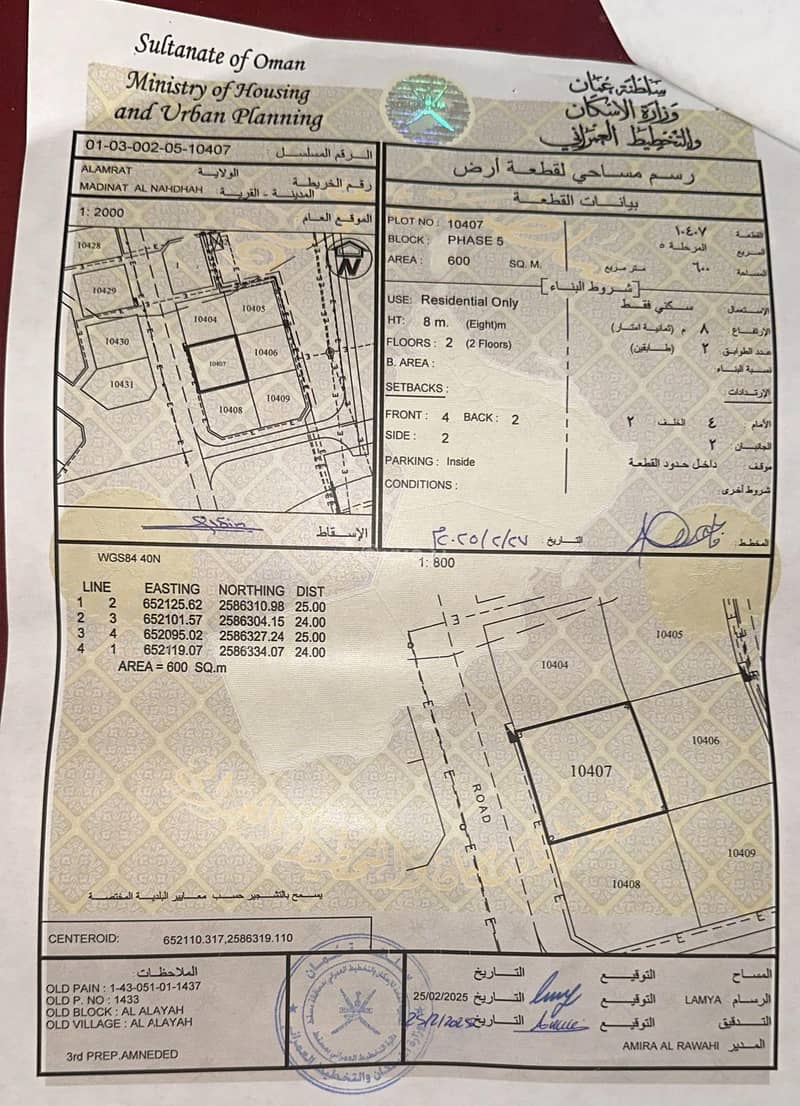 Sultanate of Oman
Ministry of Housing
and Urban Planning
سلطنة عمان
وزارة الإسكان
والتخطيط العمراني
01-03-002-05-10407 الرقم المسلسل :
ALAMRAT الولاية
MADINAT AL NAHDHAH المدينة - القرية : رقم الخريطة :
1: 2000 الموقع العام
10428
10429
10430
10431
1
10404
10405
10406
10407
10408
10409
N
الإسقاط
رسم مساحي لقطعة أرض
بيانات القطعة
PLOT NO : 10407
١٠٤٠٧ القطعة :
BLOCK : PHASE 5
المرحلة ٥ المربع :
AREA : 600 SQ. M.
٦٠٠ متر مربع المساحة :
[شروط البناء]
USE: Residential Only
الاستعمال : سكني فقط
HT: 8 m. (Eight)m
الارتفاع : ٨ م (ثمانية امتار)
FLOORS : 2 (2 Floors)
عدد الطوابق : ٢ (طابقين)
B. AREA :
نسبة البناء :
SETBACKS :
الإرتدادات :
FRONT : 4 BACK : 2
الأمام ٤ الخلف ٢
SIDE : 2
الجانبان ٢
PARKING : Inside
موقف : داخل حدود القطعة
CONDITIONS :
شروط أخرى :
المخطط : التاريخ : ٢٠٢٥/٢/٢٧م
WGS84 40N
LINE EASTING NORTHING DIST
1 2 652125.62 2586310.98 25.00
2 3 652101.57 2586304.15 24.00
3 4 652095.02 2586327.24 25.00
4 1 652119.07 2586334.07 24.00
AREA = 600 SQ.m
1: 800
10404
10405
10406
10407
10408
10409
ROAD
يسمح بالتشجير حسب معايير البلدية المختصة
CENTEROID: 652110.317,2586319.110
الملاحظات :
OLD PAIN : 1-43-051-01-1437
OLD P. NO : 1433
OLD BLOCK : AL ALAYAH
OLD VILLAGE : AL ALAYAH
3rd PREP.AMNEDED
المساح التوقيع التاريخ
الرسام LAMYA التوقيع التاريخ 25/02/2025
التدقيق التوقيع التاريخ 25/2/2025
المدير AMIRA AL RAWAHI